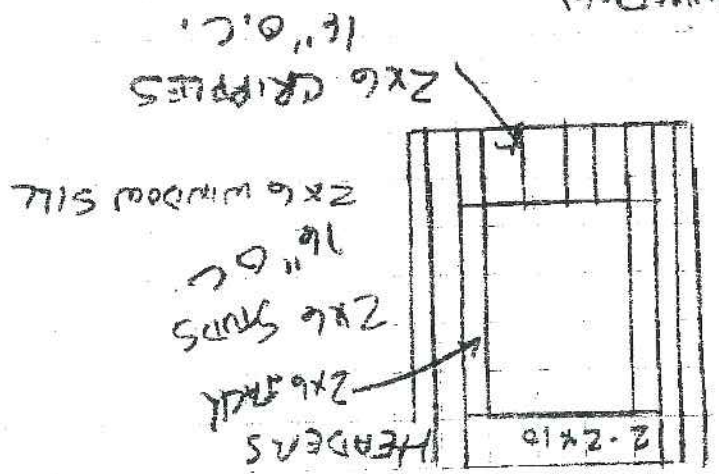 2-2x10 HEADERS
2x6 JACK
2x6 STUDS
16" O C
2x6 WINDOW SILL
2x6 CRIPPLES
16" O.C.